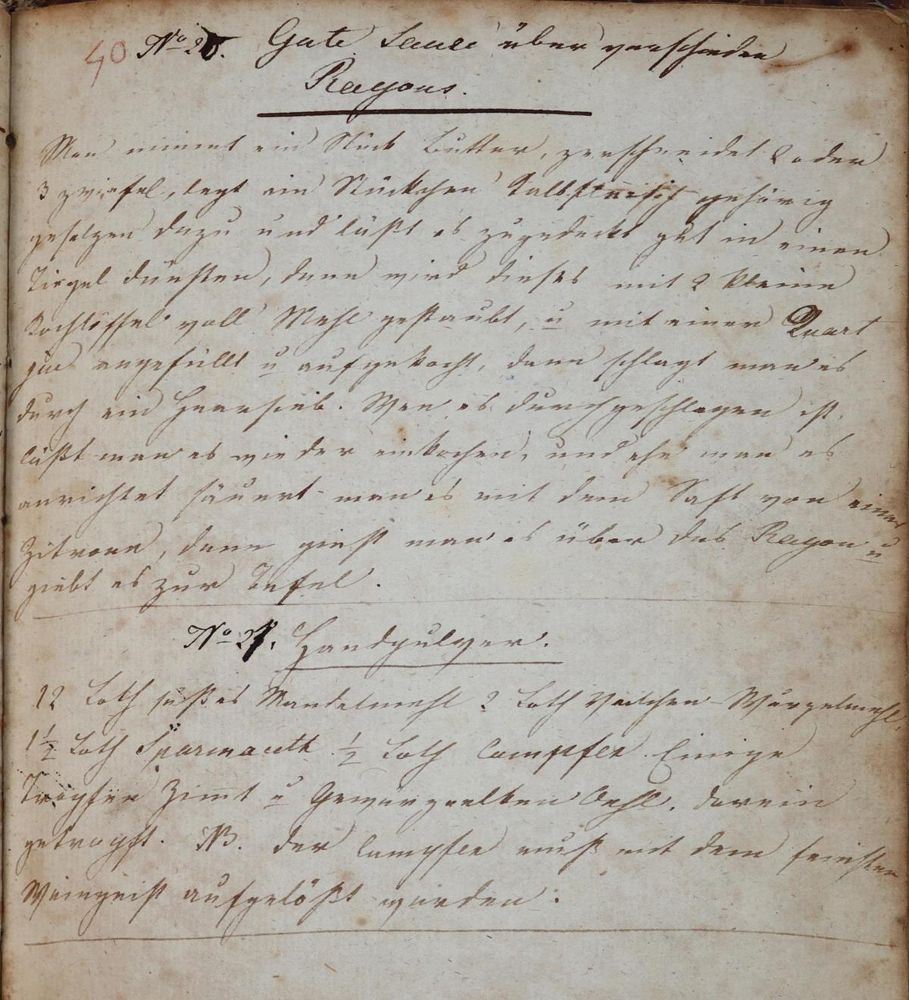 40 No 20. Gute Sauce über verschiedene
Ragous.
Man nimmt ein Stück Butter, zerschneidet 2 oder
3 zwiefel, legt ein Stückchen Kalbfleisch gehörig
gesalzen dazu und läßt es zugedeckt gut in einen
Tiegel dünsten, dann wird dieses mit 2 kleine
Kochlöffel voll Mehl gestaubt, u mit einer Quart
jus angefüllt u aufgekocht, dann schlagt man es
durch ein Haarsieb. Wen es durchgeschlagen ist,
läßt man es wieder einkochen, und ehe man es
anrichtet säuert man es mit dem Saft von einer
Zitrone, dann gießt man es über das Ragou u
giebt es zur Tafel.
No 21. Handpulver.
12 Loth süßes Mandelmehl 2 Loth Veilchen-Wurzelmehl,
1½ Loth Sparmaceth ½ Loth Campfer Einige
Tropfen Zimt u Gewürznelken Oehl. darein
getropft. NB. der Campfer muß mit dem feinsten
Weingeist aufgelößt werden.